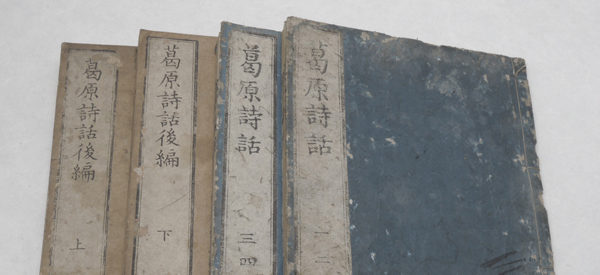 葛原詩話 一二
葛原詩話 三四
葛原詩話後編 下
葛原詩話後編 上